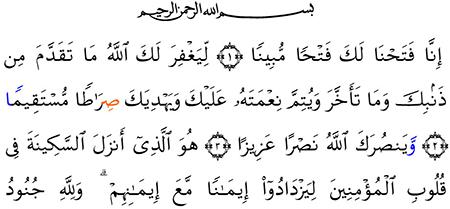 بسم الله الرحمن الرحيم
إِنَّا فَتَحْنَا لَكَ فَتْحًا مُّبِينًا ﴿١﴾ لِّيَغْفِرَ لَكَ ٱللَّهُ مَا تَقَدَّمَ مِن
ذَنۢبِكَ وَمَا تَأَخَّرَ وَيُتِمَّ نِعْمَتَهُۥ عَلَيْكَ وَيَهْدِيَكَ صِرَٰطًا مُّسْتَقِيمًا
﴿٢﴾ وَيَنصُرَكَ ٱللَّهُ نَصْرًا عَزِيزًا ﴿٣﴾ هُوَ ٱلَّذِىٓ أَنزَلَ ٱلسَّكِينَةَ فِى
قُلُوبِ ٱلْمُؤْمِنِينَ لِيَزْدَادُوٓا۟ إِيمَٰنًا مَّعَ إِيمَٰنِهِمْ ۗ وَلِلَّهِ جُنُودُ